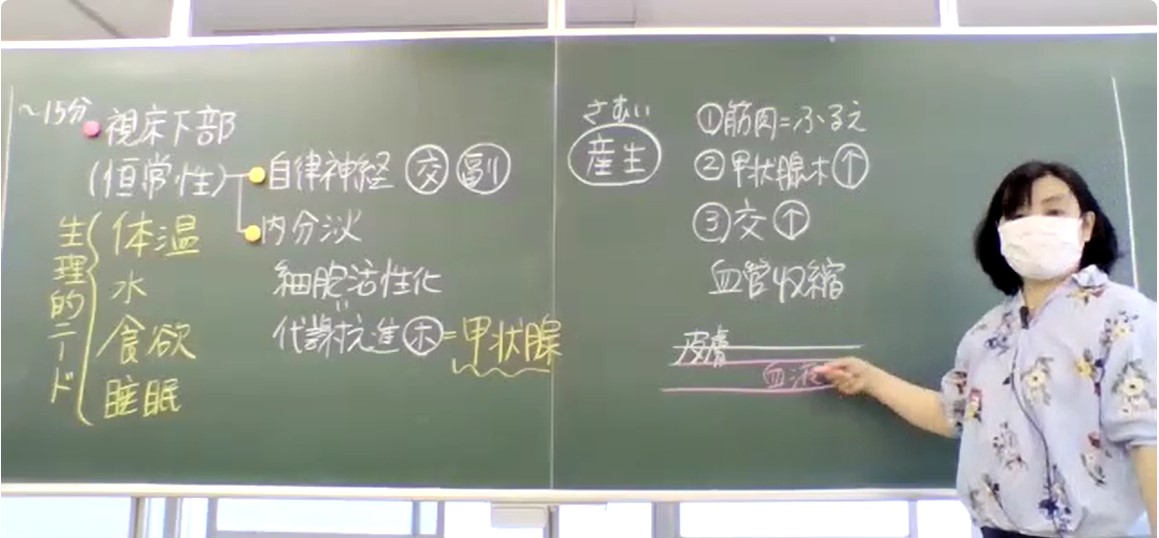 〜15分
視床下部
(恒常性)
自律神経 交 副
内分泌
細胞活性化
代謝抗進 ホ=甲状腺
生理的ニード
体温
水
食欲
睡眠
さむい
産生
①筋肉=ふるえ
②甲状腺ホ↑
③交↑
血管収縮
皮膚
血液